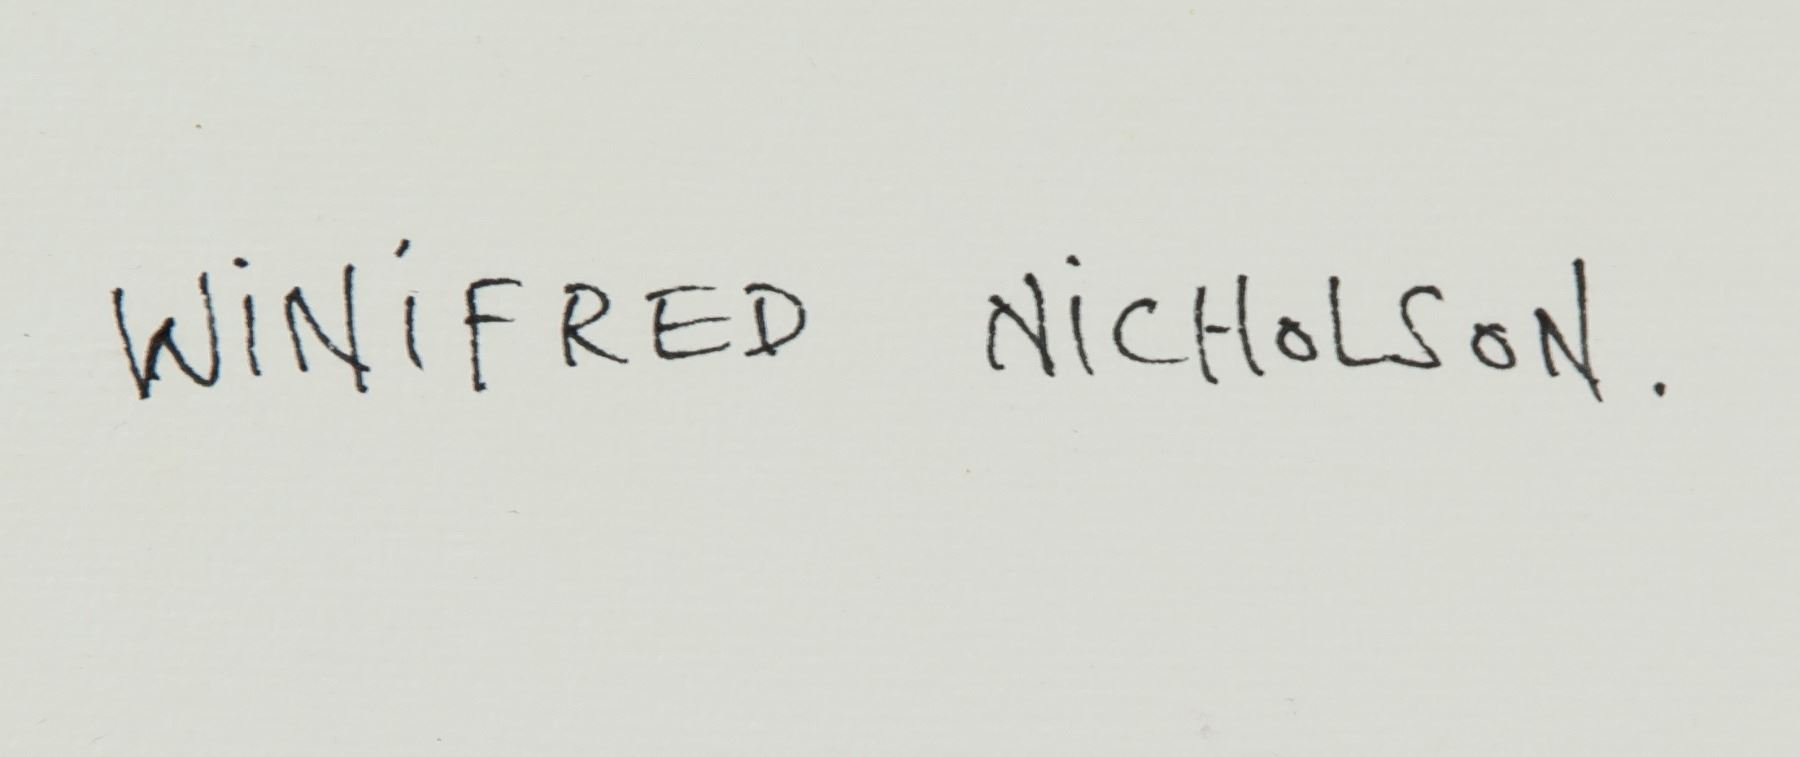 WiNiFRED NiCHOLSON.